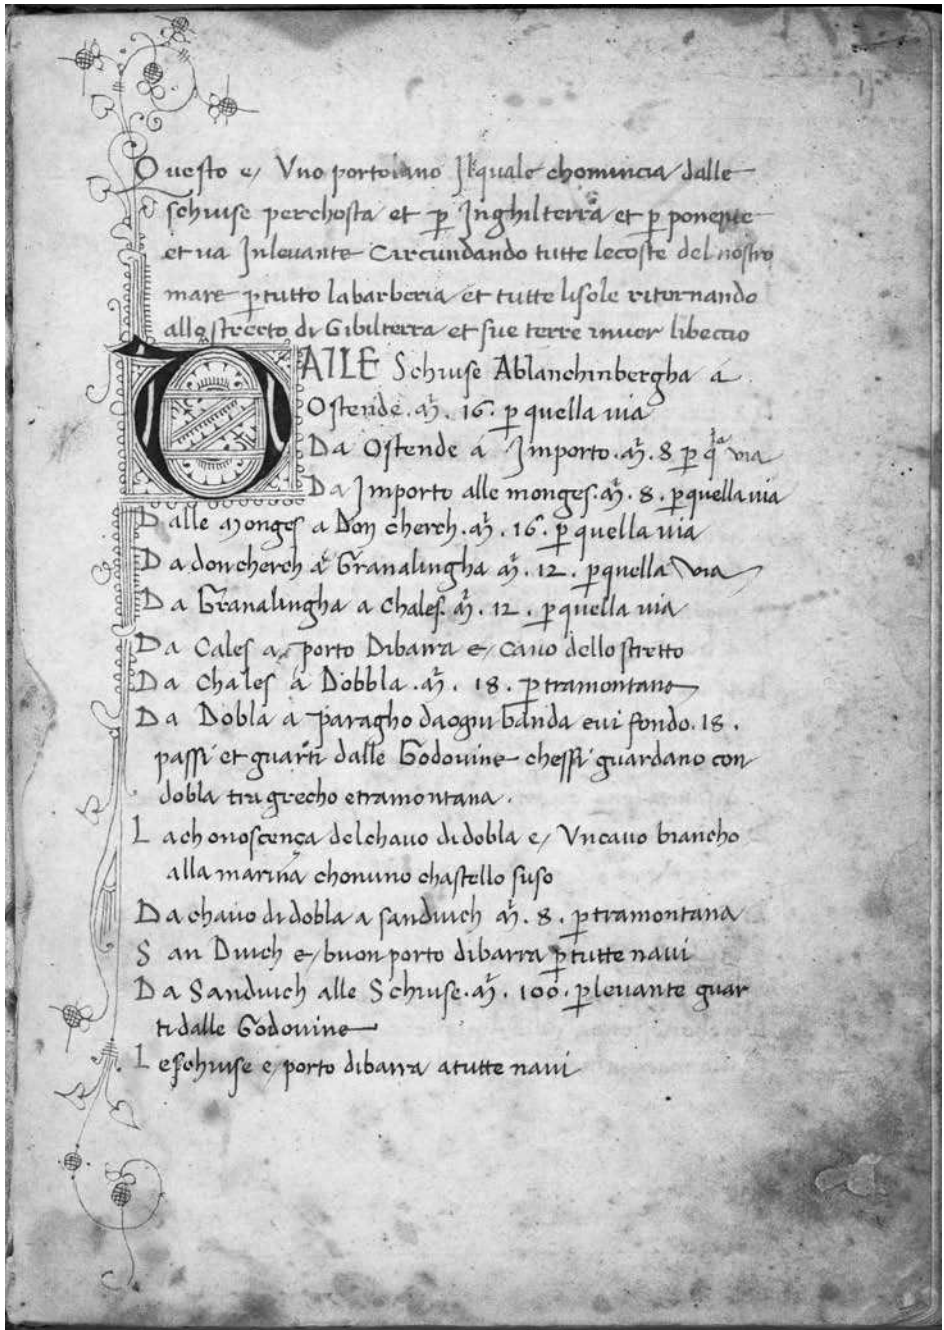 Questo e/ Vno portolano Ilquale chomincia dalle
schiuse perchosta et p Inghilterra et p ponente
et ua Inleuante Circundando tutte lecoste del nostro
mare p tutto labarberia et tutte lisole ritornando
allo streeto di Gibilterra et sue terre inuer libeccio
DALLE Schiuse Ablanchinbergha a
Ostende . mᵃ . 16 . p quella uia
Da Ostende a Importo . mᵃ . 8 p qᵃ uia
Da Importo alle monges . mᵃ . 8 . p quella uia
Dalle monges a Don cherch . mᵃ . 16 . p quella uia
Da doncherch a Granalingha mᵃ . 12 . p quella uia
Da Granalingha a Chales . mᵃ . 12 . p quella uia
Da Cales a porto Dibarra e/ cauo dello stretto
Da Chales a Dobbla . mᵃ . 18 . p tramontane
Da Dobla a paragho daogni banda eui fondo . 18 .
passi et guarti dalle Godouine chessi guardano con
dobla tra grecho etramontana .
La chonoscença delchauo di dobla e/ Vncauo biancho
alla marina chonuno chastello suso
Da chauo di dobla a sanduich mᵃ . 8 . p tramontana
San Duich e/ buon porto dibarra p tutte naui
Da Sanduich alle Schiuse . mᵃ . 100 . p leuante guar
ti dalle Godouine
Leschiuse e/ porto dibarra atutte naui